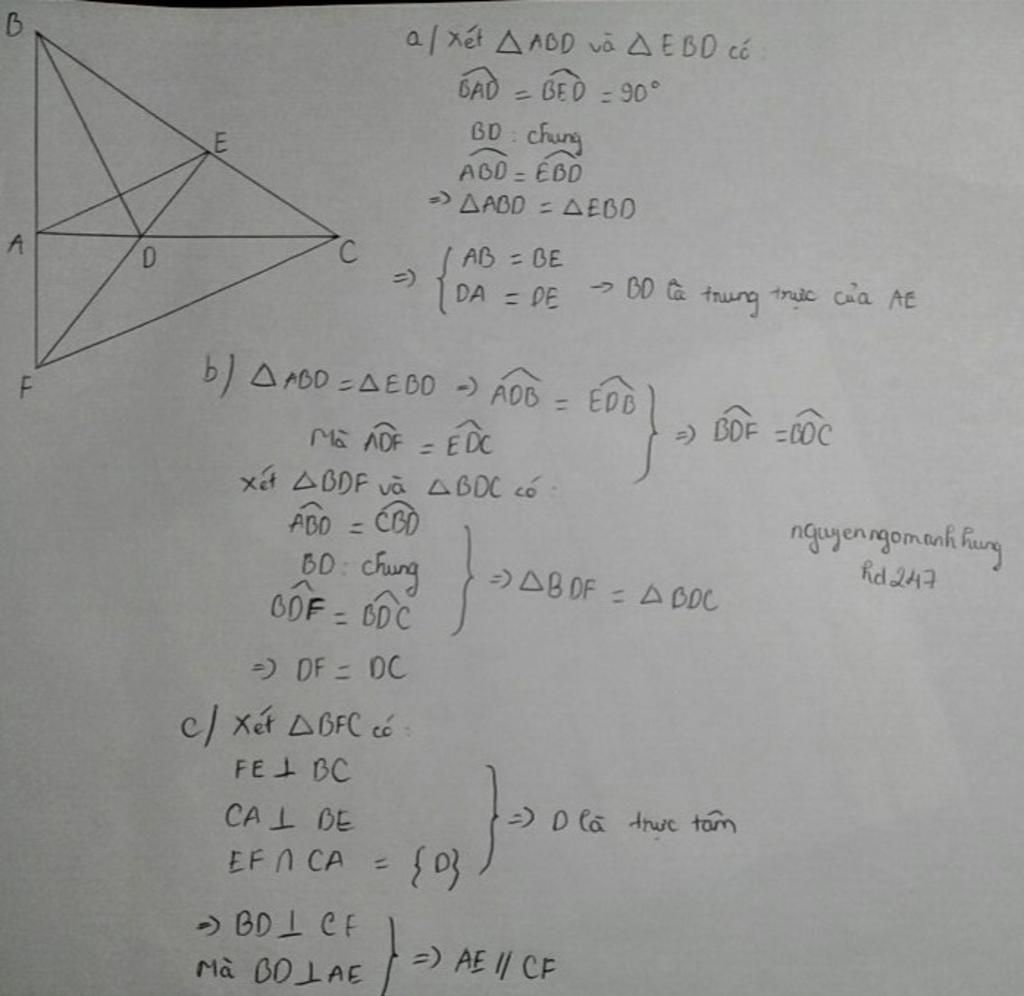 B
E
A
D
C
F
a/ Xét △ABD và △EBD có
$\widehat{BAD}$ = $\widehat{BED}$ = 90°
BD : chung
$\widehat{ABD}$ = $\widehat{EBD}$
=> △ABD = △EBD
=> { AB = BE
DA = DE → BD là trung trực của AE
b) △ABD = △EBD => $\widehat{ADB}$ = $\widehat{EDB}$
Mà $\widehat{ADF}$ = $\widehat{EDC}$ } => $\widehat{BDF}$ = $\widehat{BDC}$
Xét △BDF và △BDC có :
$\widehat{ABD}$ = $\widehat{CBD}$
BD : chung
$\widehat{BDF}$ = $\widehat{BDC}$ } => △BDF = △BDC
=> DF = DC
nguyenngomanhhung
hd247
c/ Xét △BFC có :
FE ⊥ BC
CA ⊥ BE
EF ∩ CA = {D} } => D là trực tâm
=> BD ⊥ CF
Mà BD ⊥ AE } => AE // CF